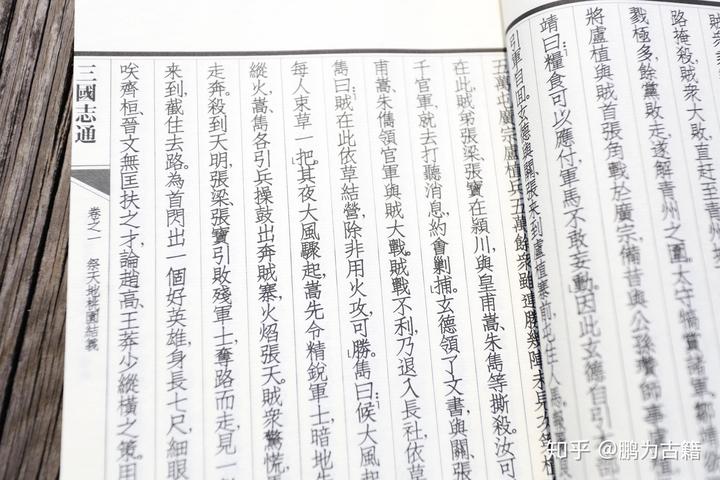 路掩殺賊衆大敗直赶至青州
戮極多餘黨敗走遂解青州之圍太守犒賞諸軍鄒靖
將盧植與賊首張角戰於廣宗備昔與公孫瓚師事盧植
靖曰糧食可以應付軍馬不敢妄動因此玄德自引
引軍自回玄德與關張来到盧植寨前
五萬屯廣宗盧植兵五萬餘衆雖連勝幾陣未見
在此賊弟張梁張寶在潁川與皇甫嵩朱雋等撕殺汝可
千官軍就去打聽消息約會剿捕玄德領了文書與關張
甫嵩朱雋領官軍與賊大戰賊戰不利乃退入長社依草
雋曰賊在此依草結營除非用火攻可勝雋曰候大風起
每人束草一把其夜大風驟起嵩先令精銳軍士暗地
縱火嵩雋各引兵操鼓出奔賊寨火焰張天賊衆驚慌
走奔殺到天明張梁張寶引敗殘軍士奪路而走見一
来到截住去路為首閃出一個好英雄身長七尺細眼
唉齊桓晉文無匡扶之才論趙高王莽少縱橫之策用
三國志通
卷之一 祭天地桃園結義
知乎 @鹏力古籍